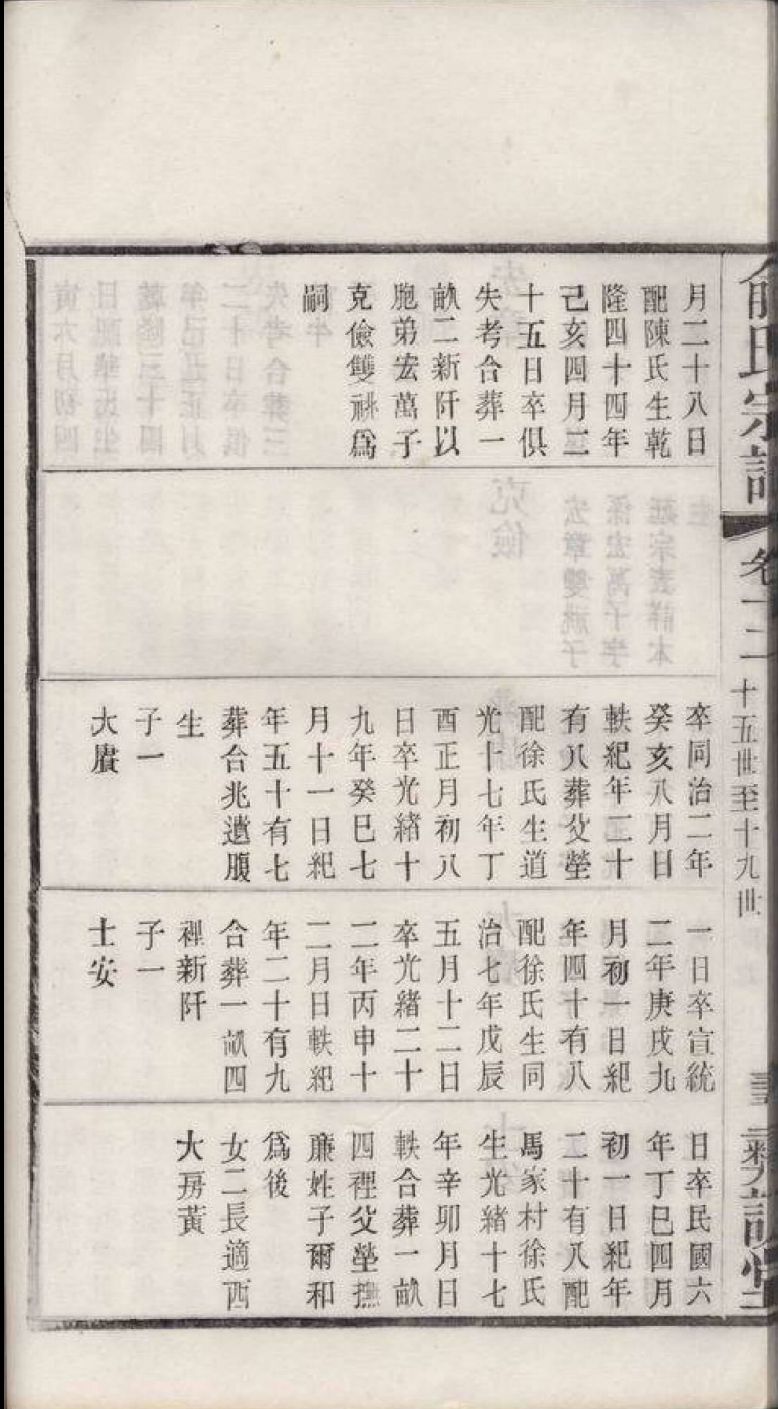 俞氏宗譜
卷十二
十五世至十九世
月二十八日
配陳氏生乾
隆四十四年
己亥四月二
十五日卒俱
失考合葬一
畝二新阡以
胞弟宏萬子
克儉雙祧爲
嗣
卒同治二年
癸亥八月日
軼紀年二十
有八葬父塋
配徐氏生道
光十七年丁
酉正月初八
日卒光緒十
九年癸巳七
月十一日紀
年五十有七
葬合兆遺腹
生
子一
大賡
一日卒宣統
二年庚戌九
月初一日紀
年四十有八
配徐氏生同
治七年戊辰
五月十二日
卒光緒二十
二年丙申十
二月日軼紀
年二十有九
合葬一畝四
裡新阡
子一
士安
日卒民國六
年丁巳四月
初一日紀年
二十有八配
馬家村徐氏
生光緒十七
年辛卯月日
軼合葬一畝
四裡父塋撫
廉姓子爾和
爲後
女二長適西
大房黃